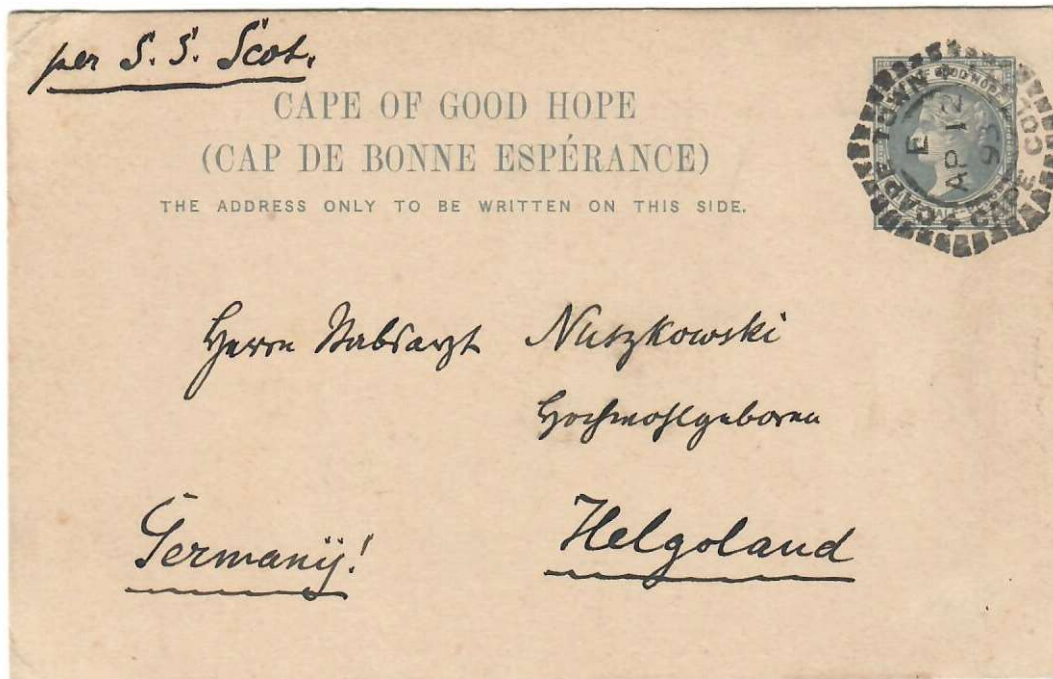 per S. S. Scot.
CAPE OF GOOD HOPE
(CAP DE BONNE ESPÉRANCE)
THE ADDRESS ONLY TO BE WRITTEN ON THIS SIDE.
CAPE TOWN
E
AP 12
93
CAPE COL
GOOD HOPE
Herrn Stabsarzt Nuszkowski
Hochwohlgeboren
Germanÿ! Helgoland